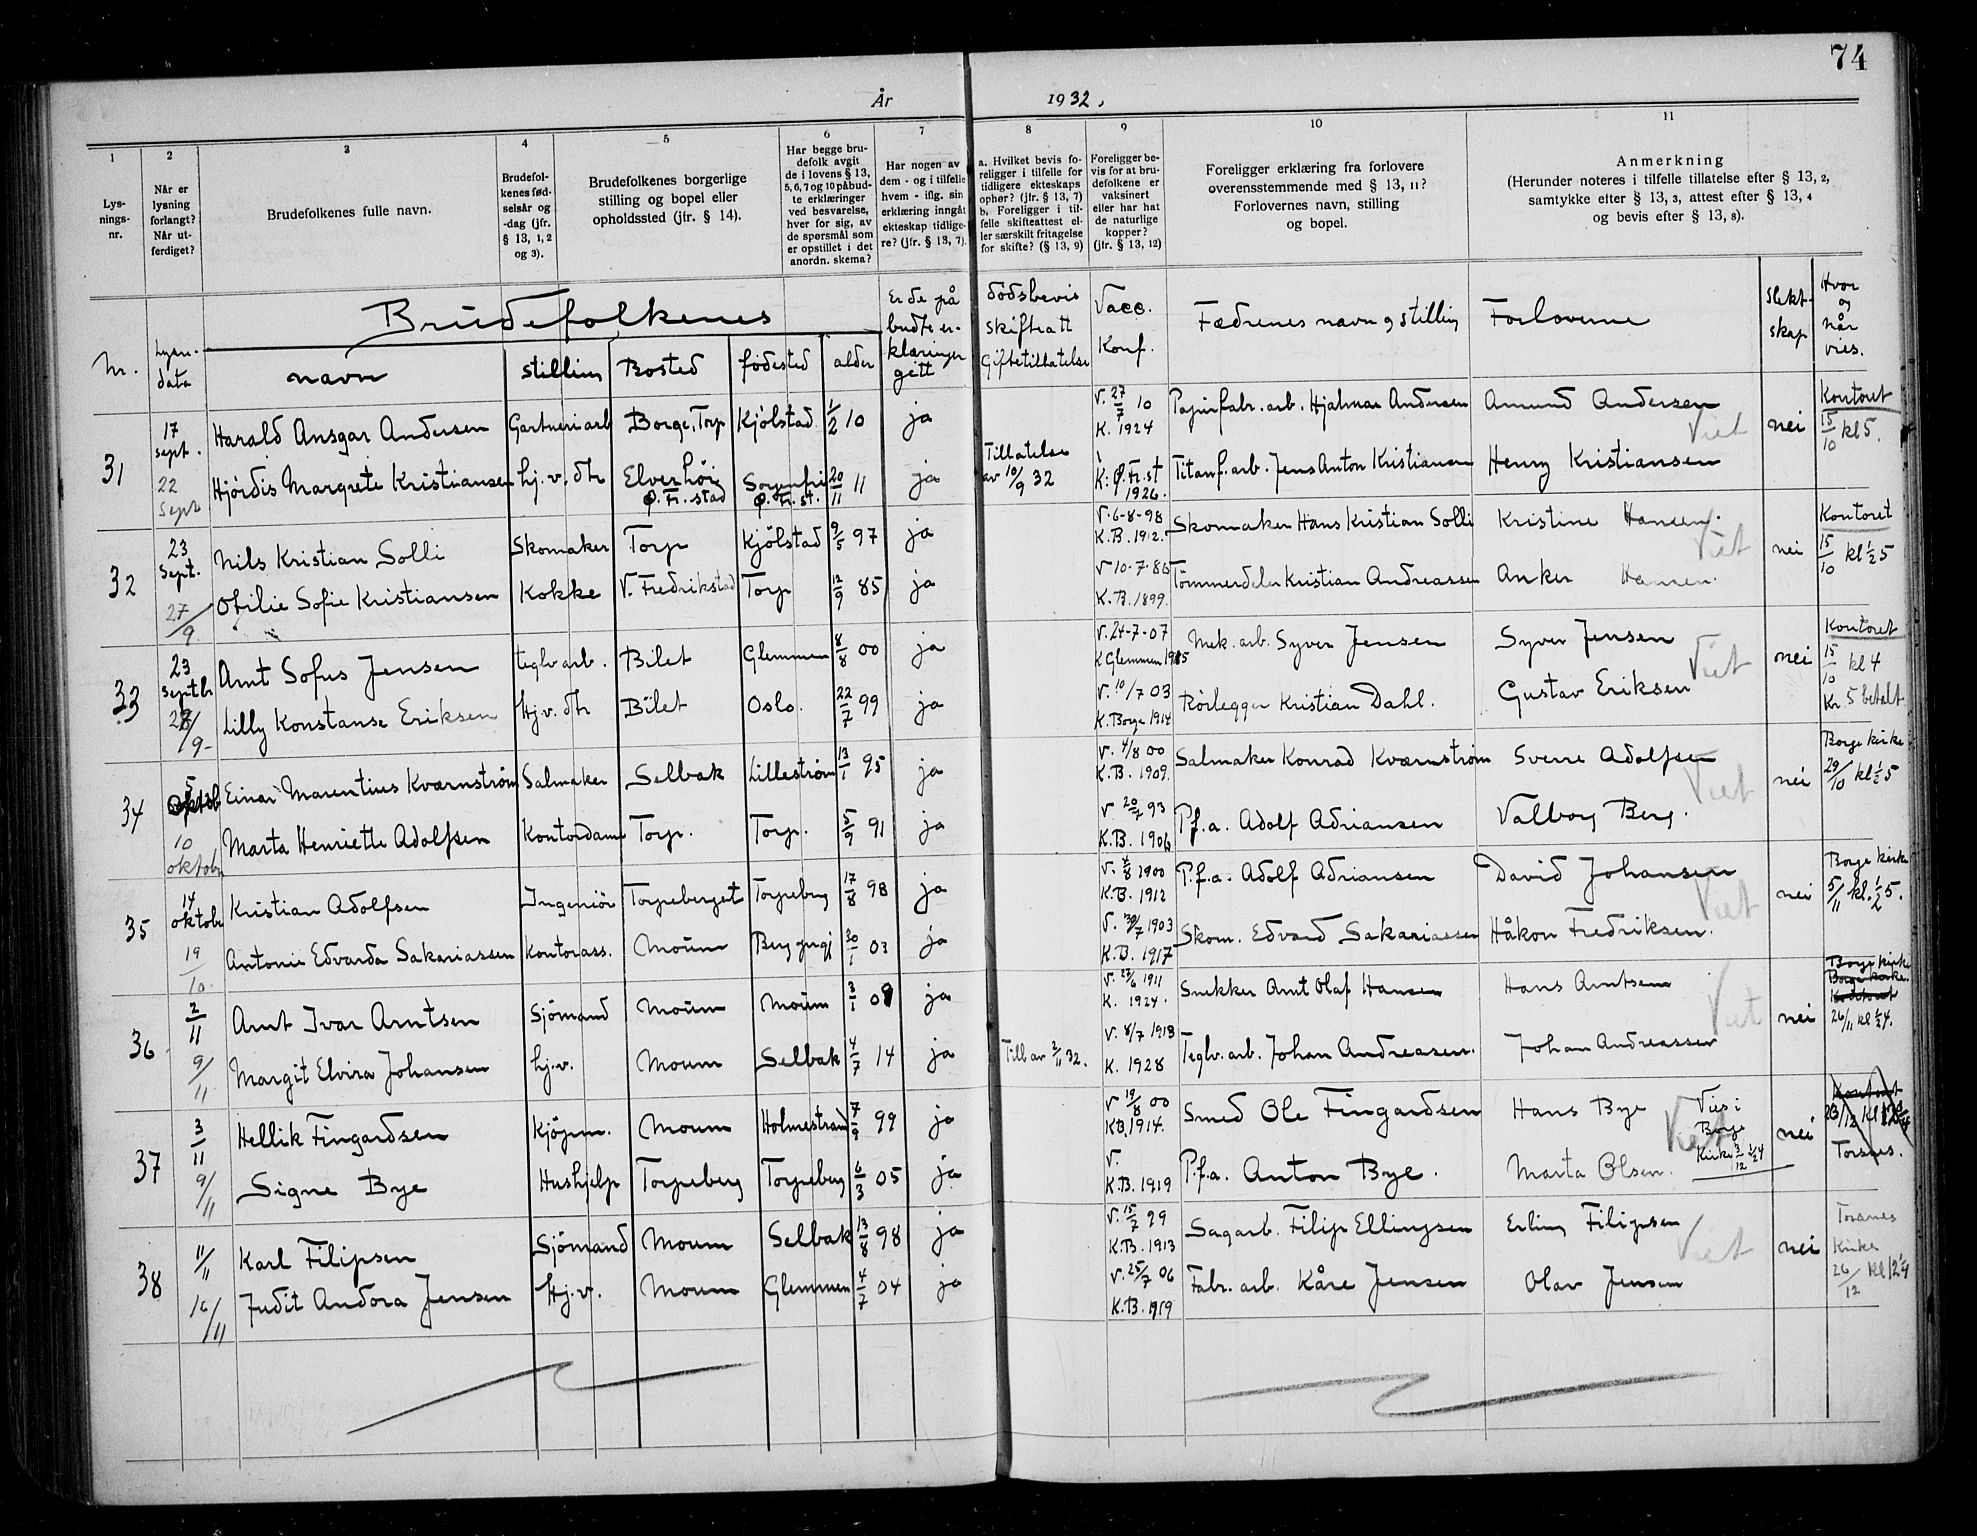 74
År 1932.
1 2 3 4 5 6 7 8 9 10 11
Lys-
nings-
nr.
Når er
lysning
forlangt?
Når ut-
ferdiget?
Brudefolkenes fulle navn.
Brudefol-
kenes fød-
selsår og
-dag (jfr.
§ 13, 1, 2
og 3).
Brudefolkenes borgerlige
stilling og bopel eller
opholdssted (jfr. § 14).
Har begge bru-
defolk avgit
de i lovens § 13,
5, 6, 7 og 10 påbud-
te erklæringer
ved besvarelse,
hver for sig, av
de spørsmål som
er opstillet i det
anordn. skema?
Har nogen av
dem - og i tilfelle
hvem - iflg. sin
erklæring inngått
ekteskap tidlige-
re? (jfr. § 13, 7).
a. Hvilket bevis fo-
religger i tilfelle for
tidligere ekteskaps
ophør? (jfr. § 13, 7)
b. Foreligger i til-
felle skifteattest el-
ler særskilt fritagelse
for skifte? (§ 13, 9)
Foreligger be-
vis for at bru-
defolkene er
vaksinert
eller har hat
de naturlige
kopper?
(jfr. § 13, 12)
Foreligger erklæring fra forlovere
overensstemmende med § 13, 11?
Forlovernes navn, stilling
og bopel.
Anmerkning
(Herunder noteres i tilfelle tillatelse efter § 13, 2,
samtykke efter § 13, 3, attest efter § 13, 4
og bevis efter § 13, 8).
Brudefolkenes
Nr.
Lysn.
data
navn
stilling
Bosted
fødested
alder
Er de på
budte er-
klæringer
gitt
dødsbevis
skifteatt
Giftetillatelse
Vacc.
Konf.
Fædrenes navn og stilling
Forloverne
Slekt-
skap
Hvor
og
når
vies.
31
17 sept. Harald Ansgar Andersen Gartneriarb Borge, Torp Kjölstad 1/2 10 ja V. 27/7 10 K. 1924 Papirfabr. arb. Hjalmar Andersen Amund Andersen Viet nei Kontoret 15/10 kl 5.
22 Sept Hjördis Margrete Kristiansen hj. v. dtr Elverhöi Ø. Fr. stad Sorgenfri Ø. Fr. st. 20/11 11 ja Tillatelse av 10/9 32 K. Ø. Fr. st 1926. Titanf. arb. Jens Anton Kristiansen Henry Kristiansen
32
23 Sept. Nils Kristian Solli Skomaker Torp Kjölstad 9/5 97 ja V. 6-8-98 K. B. 1912. Skomaker Hans Kristian Solli Kristine Hansen. Viet nei Kontoret 15/10 kl 1/2 5
27/9 Otilie Sofie Kristiansen Kokke V. Fredrikstad Torp 12/9 85 ja V 10-7-86 K. B. 1899. Tömmerdeler Kristian Andreassen Anker Hansen.
33
23 Septbr Arnt Sofus Jensen teglv arb. Bilet Glemmen 8/8 00 ja V. 24-7-07 K Glemmen 1915 Mek. arb. Syver Jensen Syver Jensen Viet nei Kontoret 15/10 kl 4
/9- Lilly Konstanse Eriksen Hj. v. dtr Bilet Oslo. 22/7 99 ja V. 10/7 03 K. Borge 1914 Rörlegger Kristian Dahl. Gustav Eriksen Kr. 5 betalt
34
5 Oktob Einar Marentius Kværnström Salmaker Selbak Lilleström 13/1 95 ja V. 4/8 00 K. B. 1909. Salmaker Konrad Kværnström Sverre Adolfsen Viet nei Borge kirke 29/10 kl 1/2 5
10 oktobr Marta Henriette Adolfsen Kontordame Torp. Torp. 5/9 91 ja V. 20/7 93 K. B. 1906 P. f. a. Adolf Adriansen Valborg Berg.
35
14 oktobr Kristian Adolfsen Ingeniör Torpeberget Torpeberg 17/8 98 ja V. 4/8 1900 K. B. 1912 P. f. a. Adolf Adriansen David Johansen Viet nei Borge kirke 5/11 kl. 1/2 5.
19/10. Antonie Edvarda Sakariassen Kontorass. Moum 03 ja V. 30/7 1903 K. B. 1917 Skom. Edvard Sakariassen Håkon Fredriksen.
36
2/11 Arnt Ivar Arntsen Sjömand Moum Moum 3/1 09 ja V. 1911 K. 1924. Snekker Arnt Olaf Hansen Hans Arntsen Viet nei Borge kirke Borge kirke. Kontoret 26/11 kl 1/2 4.
9/11 Margit Elvira Johansen hj. v. Moum Selbak 4/7 14 ja Till av 2/11 32. V. 8/7 1913 K. 1928 Teglv. arb. Johan Andreasen. Johan Andreassen
37
3/11 Hellik Fingardsen Kjöpm. Moum Holmestrand 7/9 99 ja V 19/8 00 KB. 1914. Smed Ole Fingardsen Hans Bye Vies i Borge Kirke 3/12 1/2 4 Viet nei Kontoret Torsnes.
9/11 Signe Bye Hushjelp Torpeberg Torpeberg 6/3 05 ja V. K. B. 1919 P. f. a. Anton Bye. Marta Olsen.
38
11/11 Karl Filipsen Sjömand Moum Selbak 13/8 98 ja V. 15/7 99 K. B. 1913 Sagarb. Filip Ellingsen Erling Filipsen Viet nei Torsnes Kirke 26/12
16/11 Judit Andora Jensen Hj. v. Moum Glemmen 4/7 04 ja V. 25/7 06 K. B. 1919 Fabr. arb. Kåre Jensen Olav Jensen